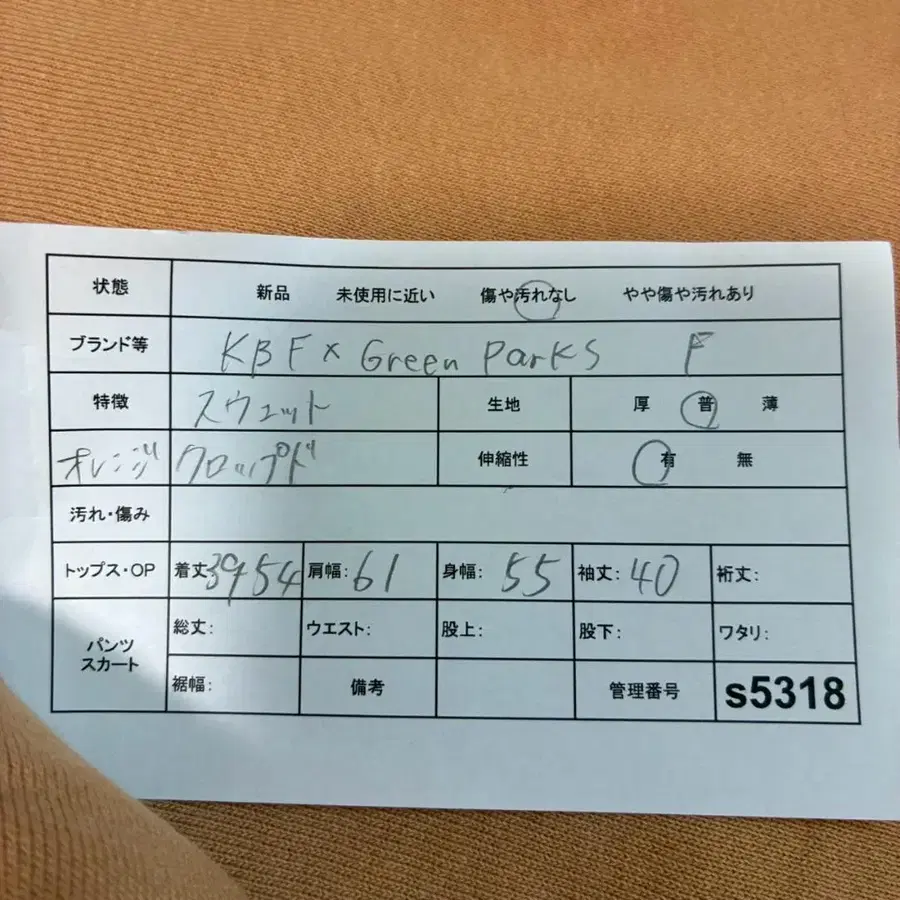 状態 新品 未使用に近い 傷や汚れなし やや傷や汚れあり
ブランド等 KBF× Green Parks F
特徴 スウェット 生地 厚 普 薄
オレンジ クロップド 伸縮性 有 無
汚れ・傷み
トップス・OP 着丈 39 54 肩幅: 61 身幅: 55 袖丈: 40 裄丈:
パンツ スカート 総丈: ウエスト: 股上: 股下: ワタリ:
裾幅: 備考 管理番号 s5318